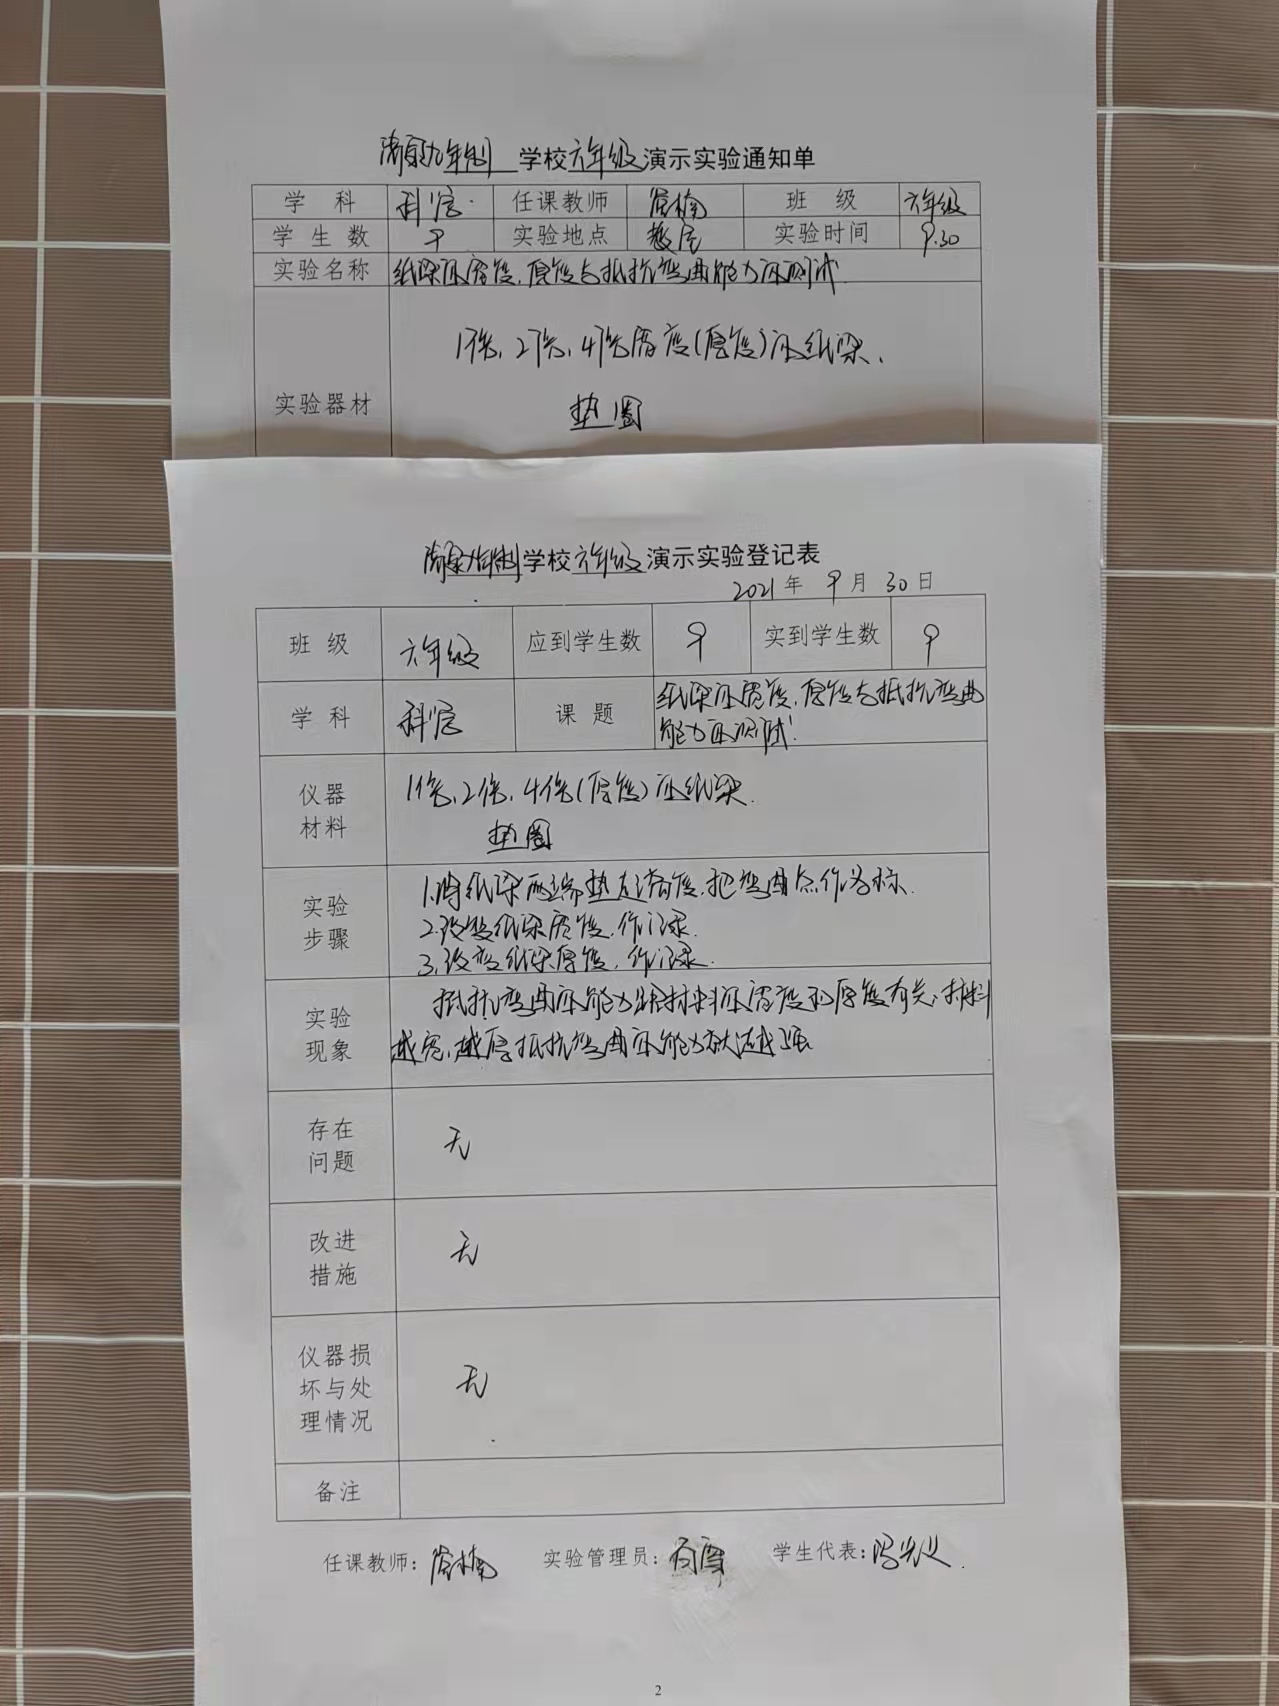 九年制 学校六年级演示实验通知单
学 科 科学 任课教师 楠 班 级 六年级
学 生 数 9 实验地点 教室 实验时间 9.30
实验名称 纸梁的宽度、厚度与抵抗弯曲能力的测试
1倍、2倍、4倍宽度(厚度)的纸梁、
实验器材
垫圈
九年制学校六年级演示实验登记表
2021年 9月 30日
班 级 六年级 应到学生数 9 实到学生数 9
学 科 科学 课 题 纸梁的宽度、厚度与抵抗弯曲
能力的测试
仪器
材料
1倍、2倍、4倍(厚度)的纸梁.
垫圈
实验
步骤
1.将纸梁两端垫起高度,把弯曲点作为标.
2.改变纸梁宽度,作记录.
3.改变纸梁厚度,作记录.
实验
现象
抵抗弯曲的能力跟材料的宽度和厚度有关,材料
越宽、越厚抵抗弯曲的能力就越强
存在
问题
无
改进
措施
无
仪器损
坏与处
理情况
无
备注
任课教师: 楠 实验管理员: 学生代表:
2